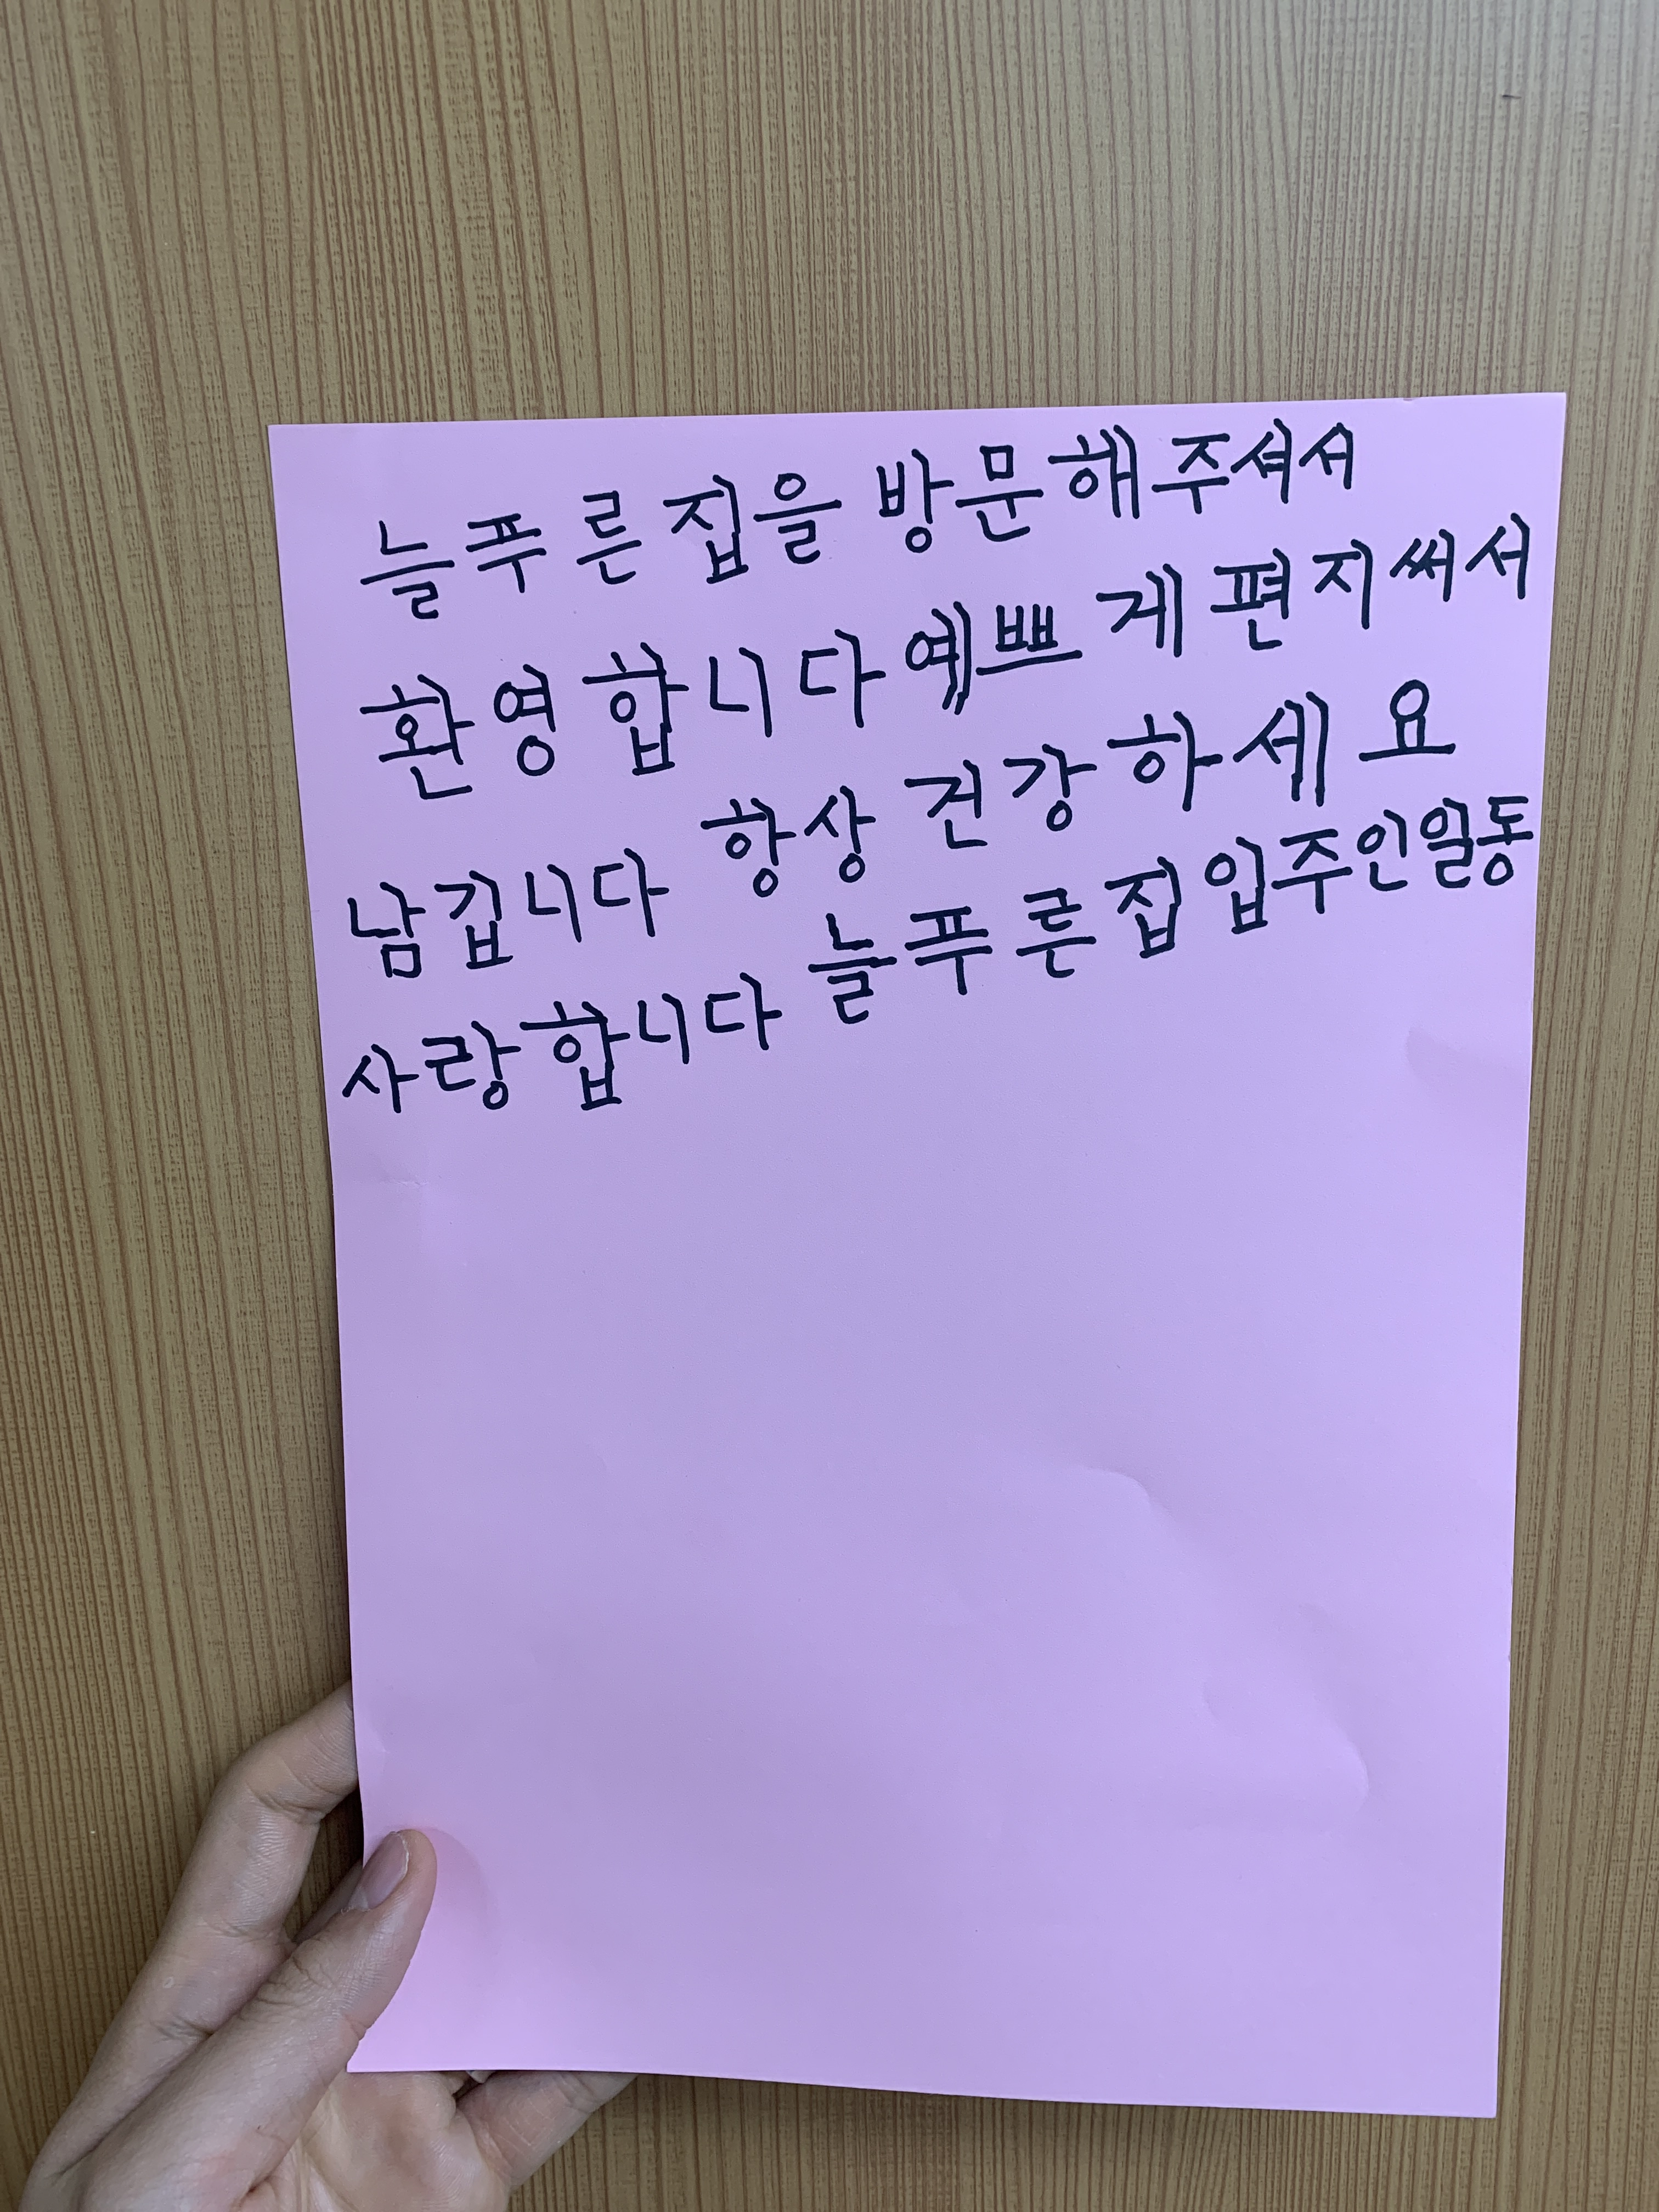 늘푸른집을 방문해주셔서
환영합니다 예쁘게 편지써서
남깁니다 항상 건강하세요
사랑합니다 늘푸른집 입주인일동